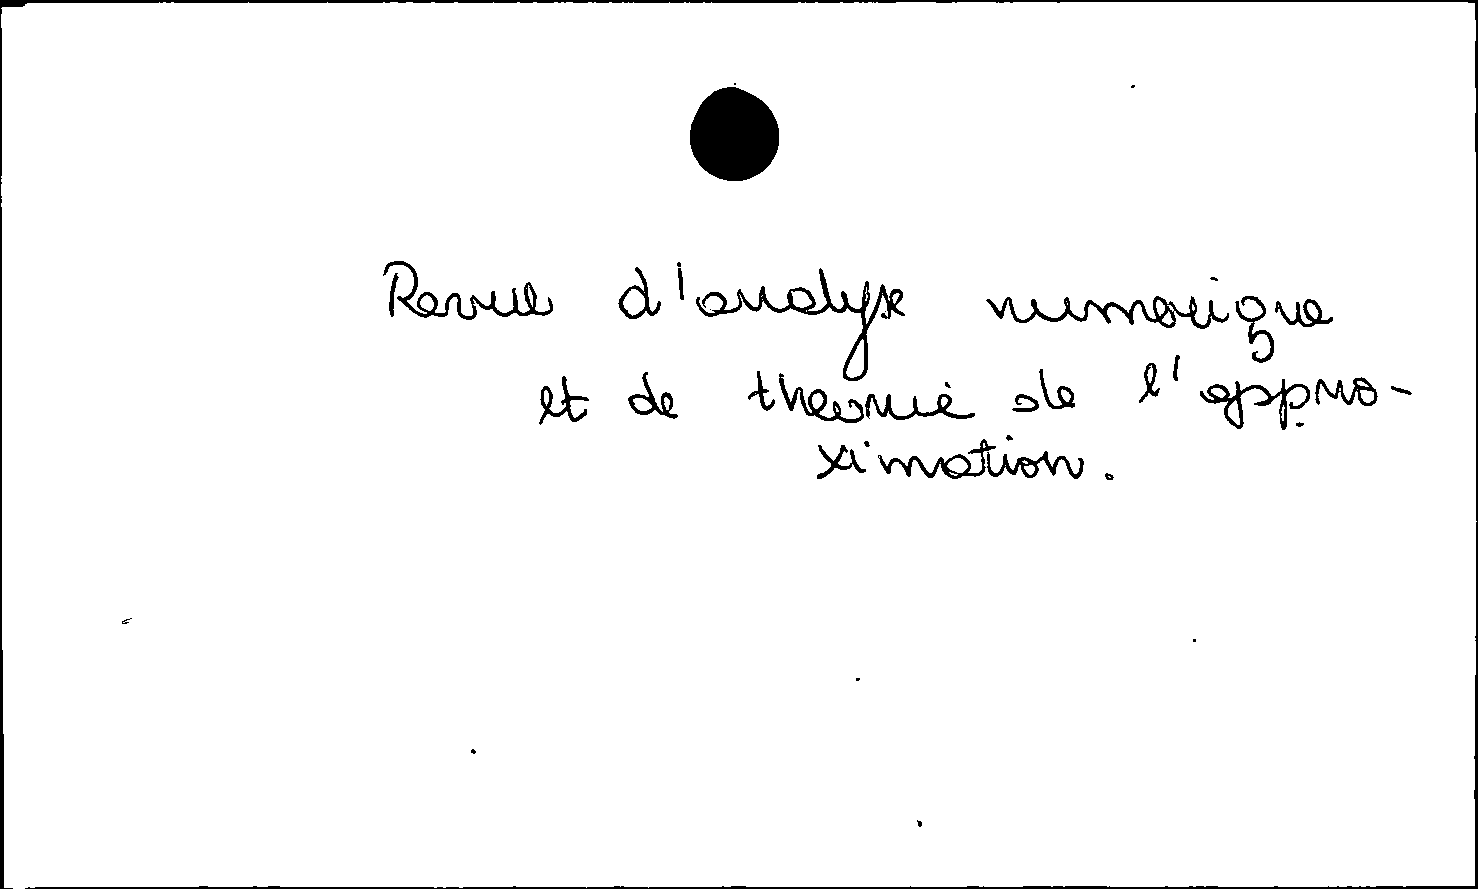 Revue d'analyse numerique
et de theorie de l'appro-
ximation.